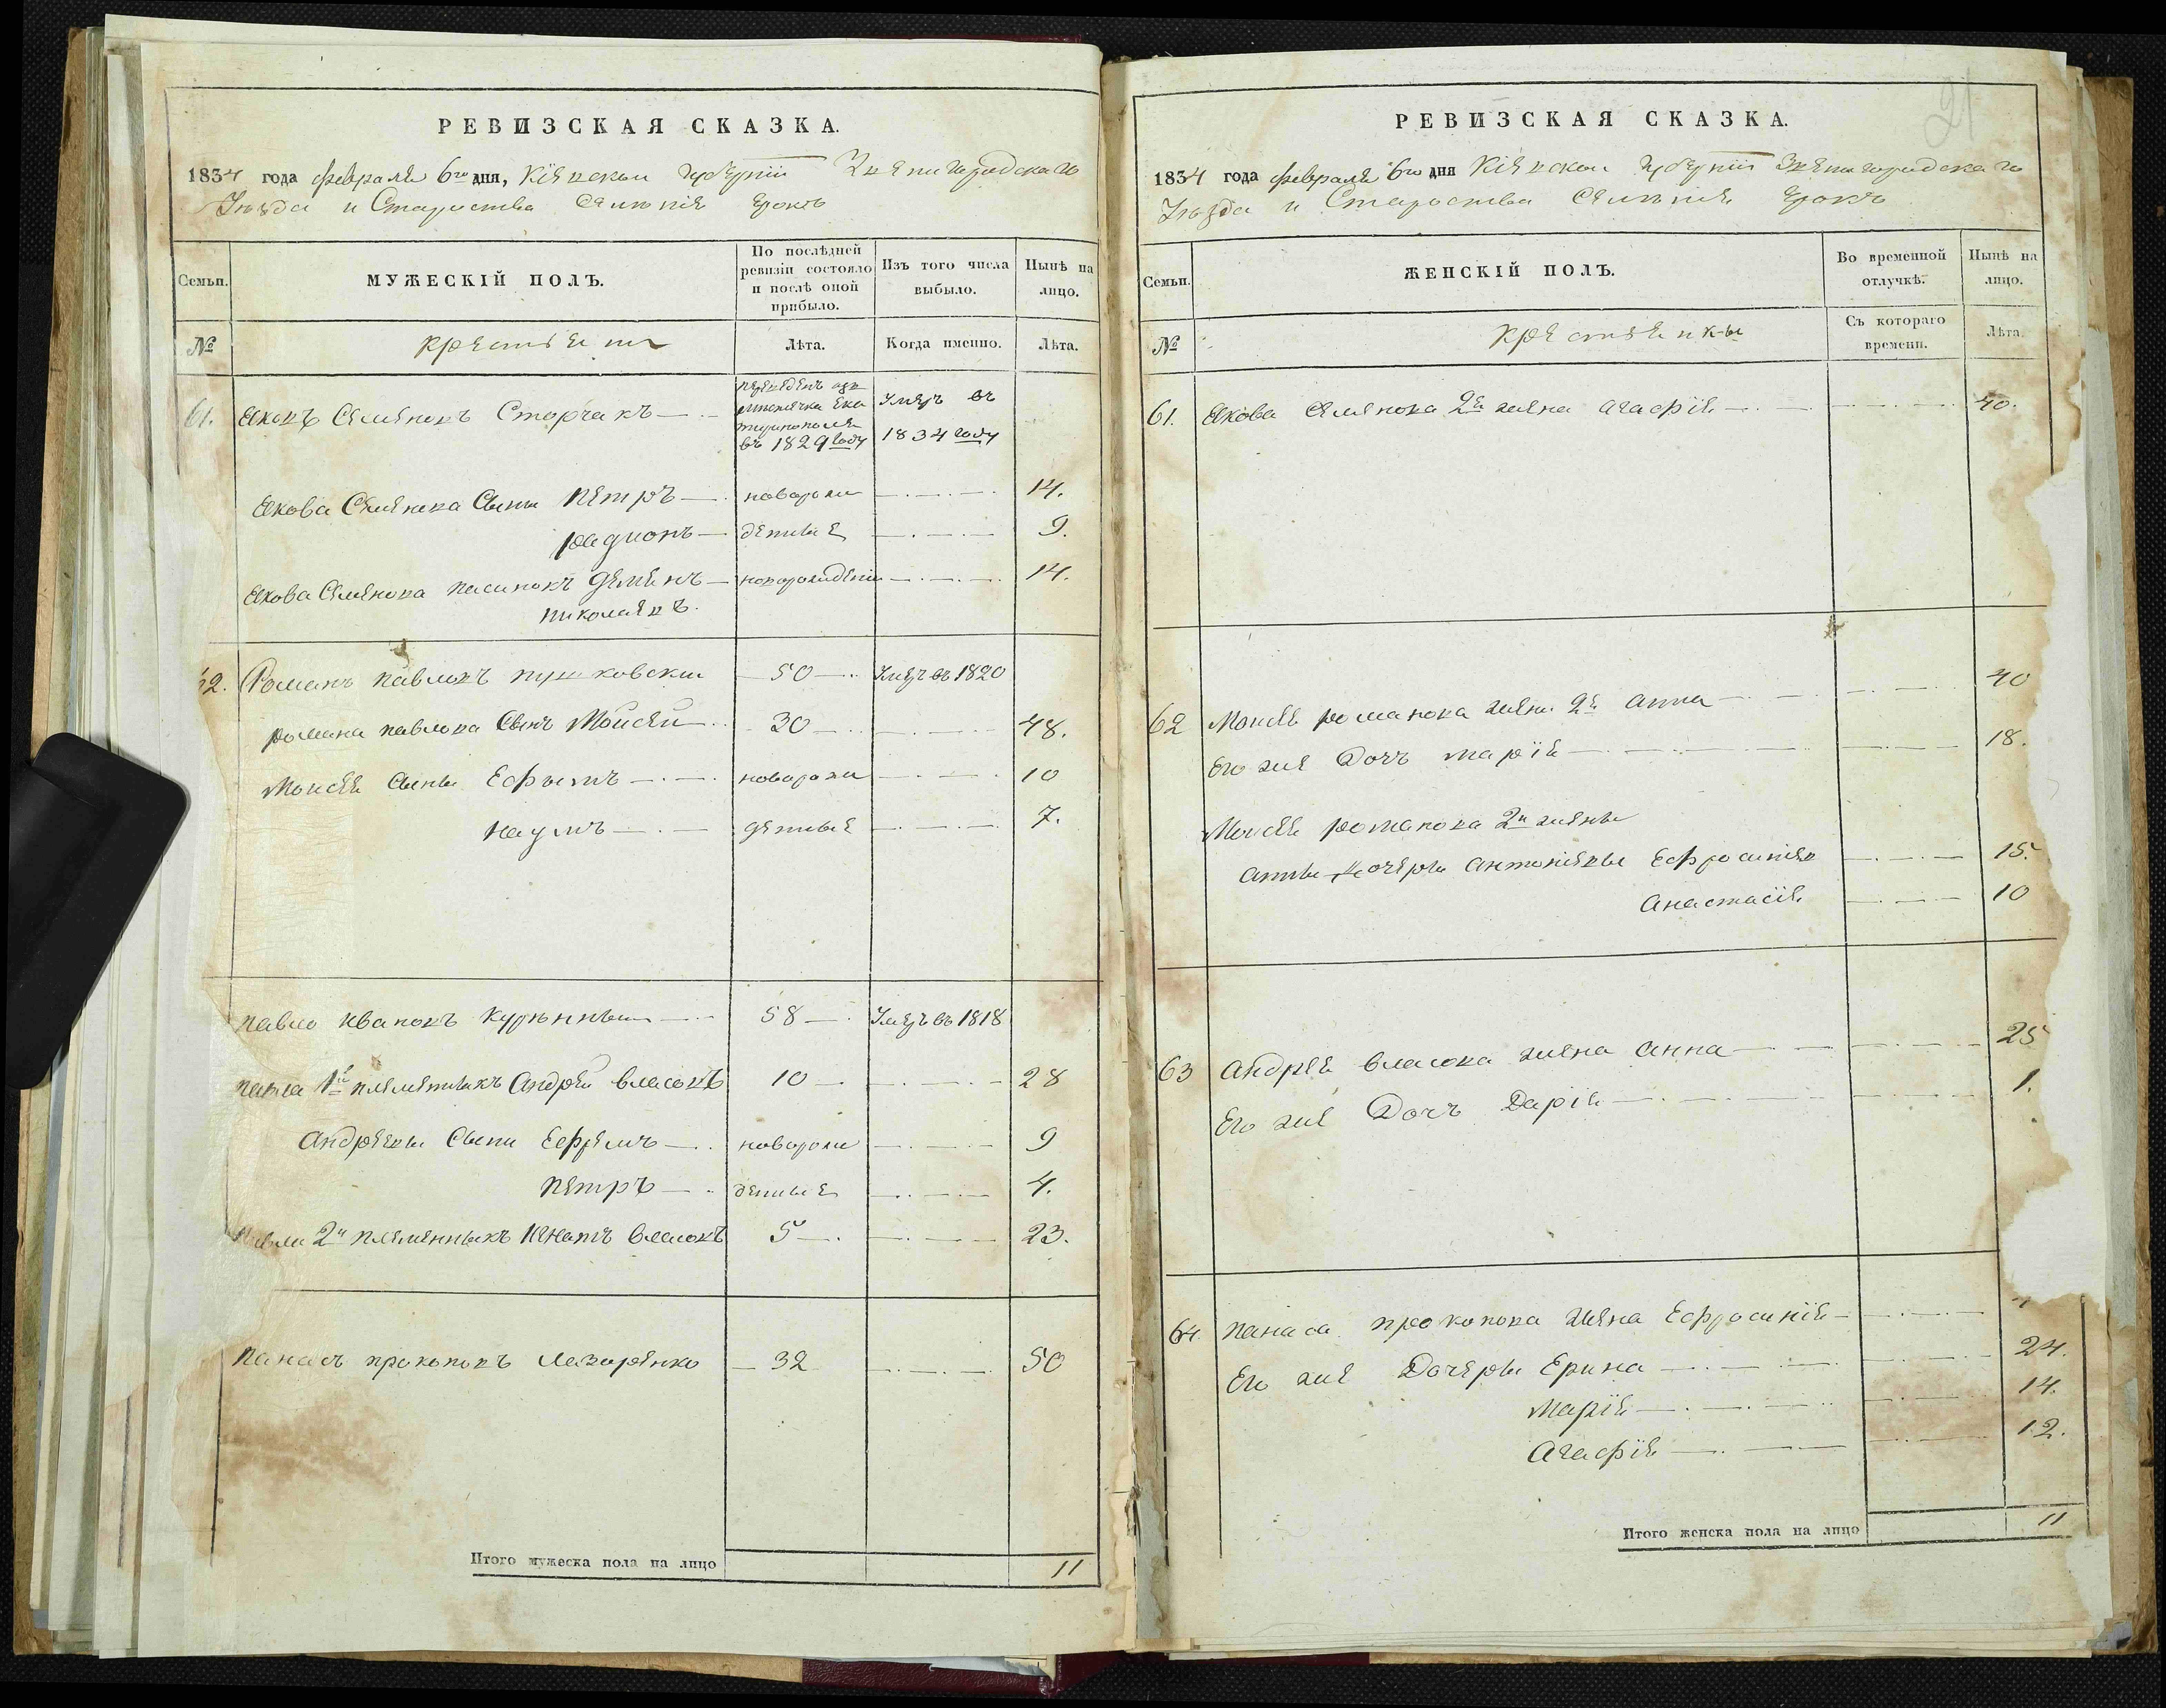 РЕВИЗСКАЯ СКАЗКА.
1834 года февраля 6го дня, Кіевскои губерніи Звенигородскаго
Уѣзда и Староства Селѣнія Ерокъ
Семьи.
МУЖЕСКІЙ ПОЛЪ.
По послѣдней ревизіи состояло и послѣ оной прибыло.
Изъ того числа выбыло.
Нынѣ на лицо.
№
Лѣта.
Когда именно.
Лѣта.
61. Яковъ Семеновъ Сторчакъ
въ 1829 году
Умеръ въ 1834 году
Якова Семенова Сыны Петръ новорож 14.
Радионъ деные 9.
Якова Семенова пасинокъ Деменъ новорожденій 14.
николаевъ.
62. Романъ павловъ 50 Умеръ въ 1820
романа павлова Сынъ Мойсей 30 48.
Моисея Сыны Ефымъ новорож 10
наумъ деные 7.
павло ивановъ Курѣнный 58 Умеръ въ 1818
павла 1й племенныкъ Андрей власовъ 10 28
Андреевы Сыни Ефремъ новорож 9
петръ деные 4.
павла 2й племенныкъ игнатъ власовъ 5 23.
панасъ прокоповъ Лазаренко 32 50
Итого мужеска пола на лицо 11
21
РЕВИЗСКАЯ СКАЗКА.
1834 года февраля 6го дня Кіевскои губерніи Звенигородскаго
Уѣзда и Староства Селѣнія Ерокъ
Семьи.
ЖЕНСКІЙ ПОЛЪ.
Во временной отлучкѣ.
Нынѣ на лицо.
№
Крестьянкы
Съ котораго времени.
Лѣта.
61. Якова Семенова 2я жена агафія 40.
62 Моисея романова жена 2я анна 40
Его же Дочъ марія 18.
Моисея романова 2й жены
анны дочеры антоніевы Ефросинія 15.
анастасія 10
63 андрея власова жена анна 25
Его же Дочъ Дарія 1.
64 панаса прокопова жена Ефросинія
Его же Дочеры Ерина 24.
марія 14.
агафія 12.
Итого женска пола на лицо 11